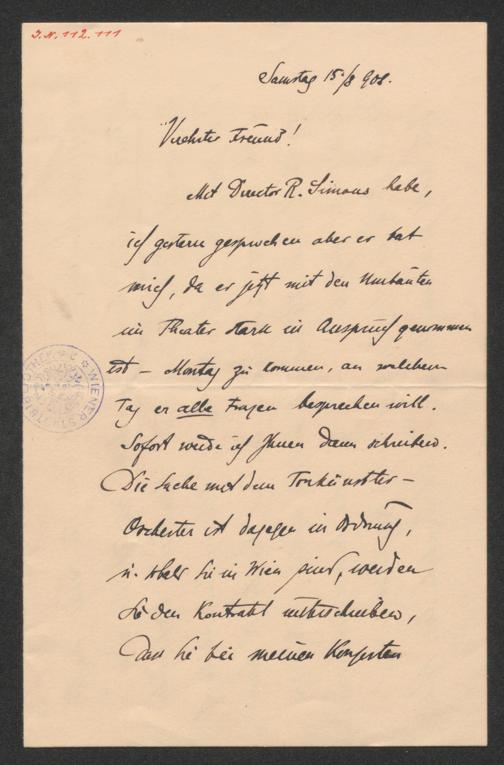 J.N. 112.111
Samstag 15./8 908.
Verehrter Freund!
Mit Director R. Simons habe,
ich gestern gesprochen aber er bat
mich, da er jetzt mit den Umbauten
im Theater stark in Anspruch genommen
ist – Montag zu kommen, an welchem
Tag er alle Fragen besprechen will.
Sofort werde ich Ihnen dann schreiben.
Die Sache mit dem Tonkünstler –
Orchester ist dagegen in Ordnung,
u. sobald Sie in Wien sind, werden
Sie den Kontrakt unterschreiben,
Dass Sie bei meinen Konzerten
WIENER STADTBIBLIOTHEK